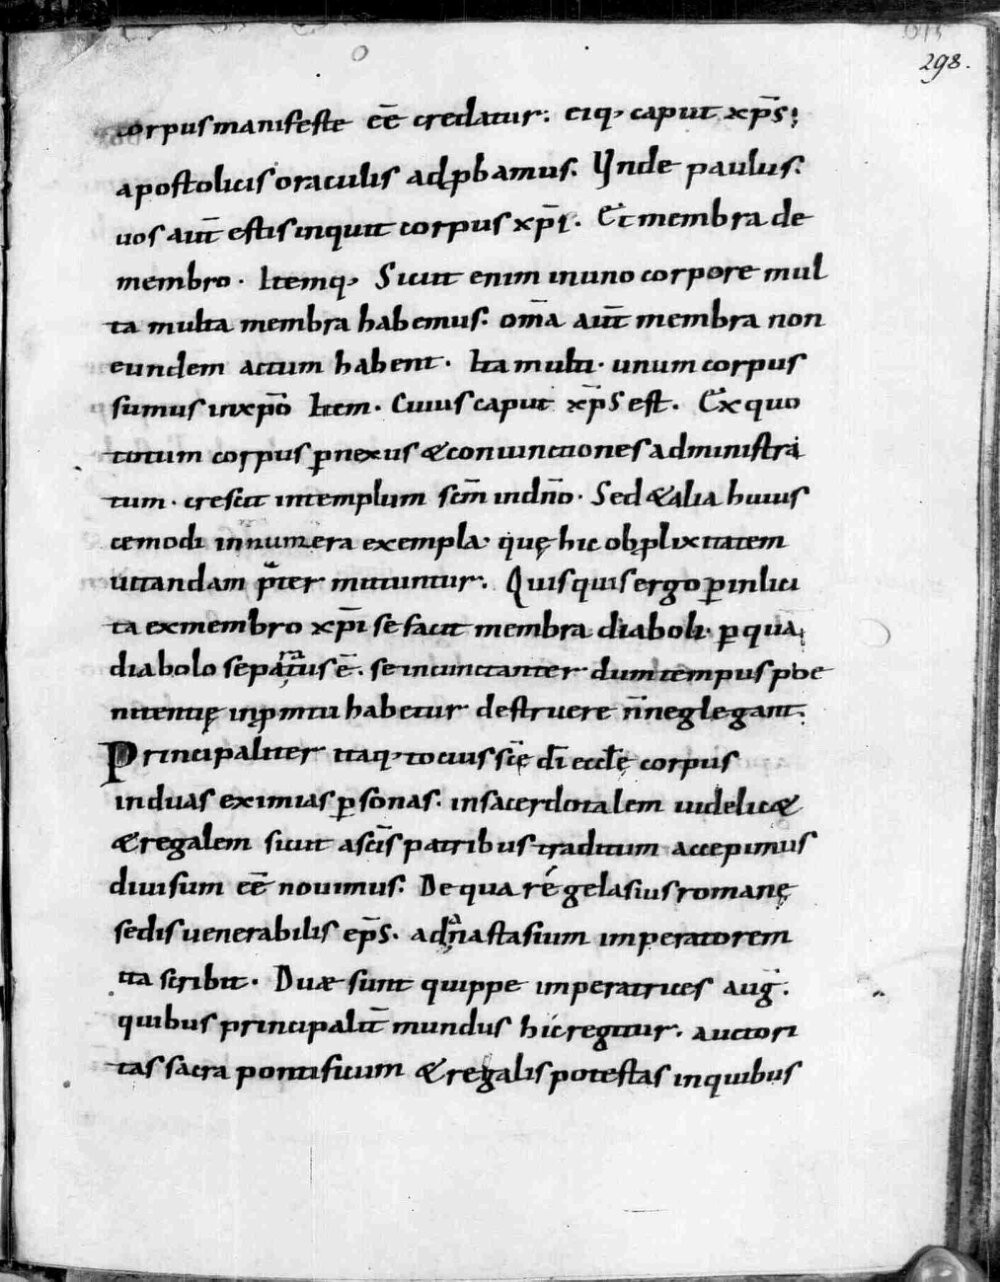 298.
corpus manifeste eē credatur: eiq, caput xp̄s;
apostolicis oraculis adp̱bamus. Vnde paulus.
uos aut̄ estis inquit corpus xp̄i. Et membra de
membro. Itemq, Sicut enim in uno corpore mul
ta multa membra habemus. om̄a aut̄ membra non
eundem actum habent. Ita multi. unum corpus
sumus in xp̄o Item. Cuius caput xp̄s est. Ex quo
totum corpus p̱nexus & coniunctiones administra
tum. crescit in templum sc̄m in dn̄o. Sed & alia huius
cemodi innumera exempla, quę hic ob p̱lixitatem
uitandam p̄ter mittuntur. Quisquis ergo p̱ inlici
ta ex membro xp̄i se facit membra diaboli, p̱ quā
diabolo separatus ē. se incunctanter dum tempus poe
nitentię in p̱mtu habetur destruere n̄ neglegant.
Principaliter itaq, tocius sc̄ę dī eccl̄ę corpus
in duas eximias p̱sonas. in sacerdotalem uidelic&
& regalem sicut a sc̄is patribus traditum accepimus
diuisum eē nouimus. De qua ré gelasius romanę
sedis uenerabilis ep̄s. ad anastasium imperatorem
ita scribit. Duæ sunt quippe imperatrices auḡ.
quibus principalit̄ mundus hic regitur. auctori
tas sacra pontificum & regalis potestas in quibus